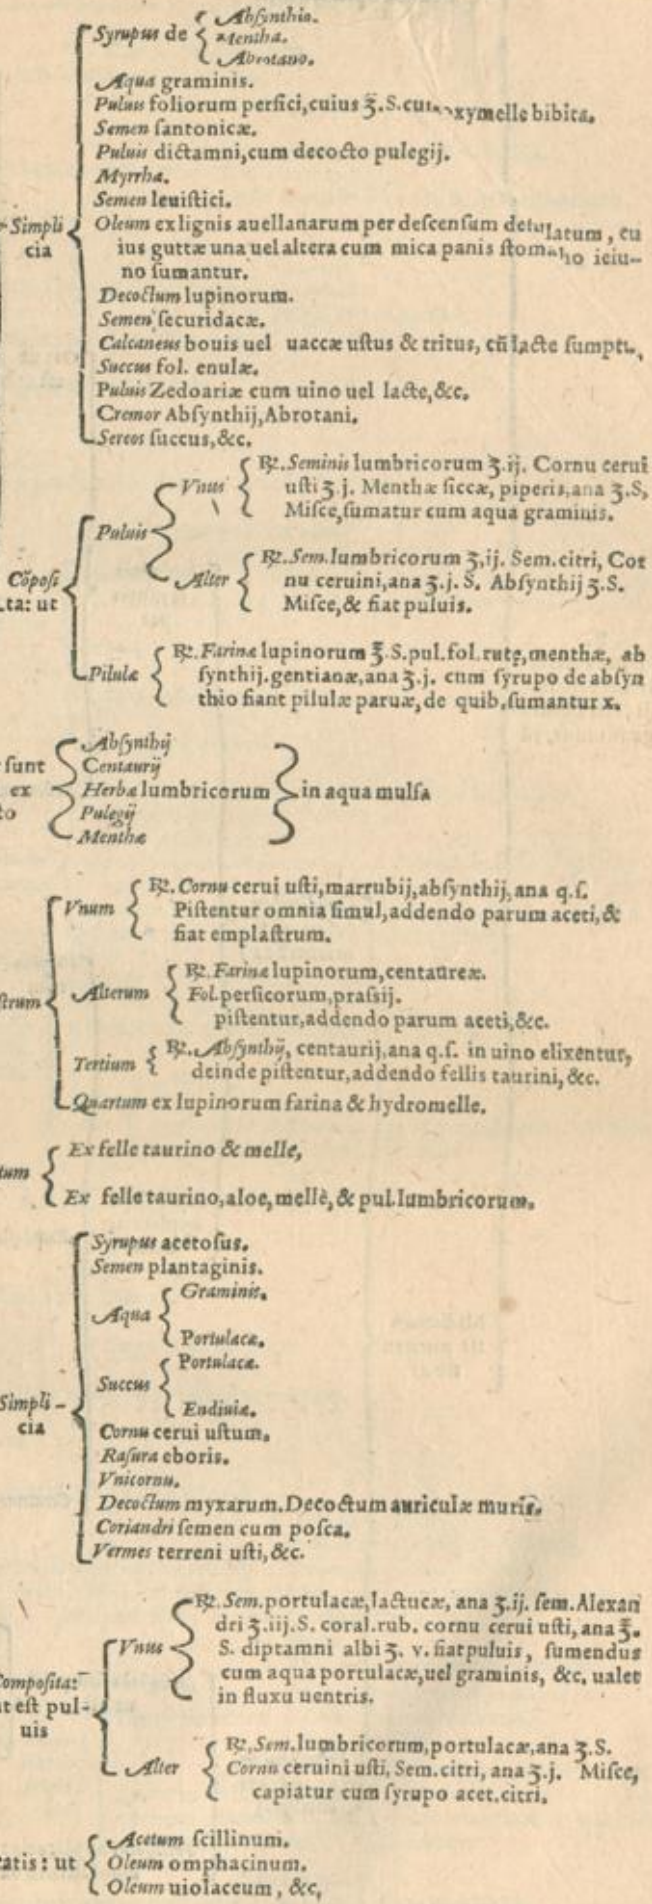 Syrupus de
Abſynthio.
Mentha.
Abrotano.
Aqua graminis.
Puluis foliorum perſici, cuius ʒ.S. cum oxymelle bibita.
Semen ſantonicæ.
Puluis dictamni, cum decocto pulegij.
Myrrha.
Semen leuiſtici.
Simpli
cia
Oleum ex lignis auellanarum per deſcenſum
, cu
ius guttæ una uel altera cum mica panis ſtomacho ieiu-
no ſumantur.
Decoctum lupinorum.
Semen ſecuridacæ.
Calcaneus bouis uel uaccæ uſtus & tritus, cū lacte ſumpt
Succus fol. enulæ.
Puluis Zedoariæ cum uino uel lacte, &c.
Cremor Abſynthij, Abrotani.
Sereos ſuccus, &c.
Cōpoſi
ta: ut
Puluis
Vnus
℞. Seminis lumbricorum ʒ.ij. Cornu cerui
uſti ʒ.j. Menthæ ſiccæ, piperis, ana ʒ.S,
Miſce, ſumatur cum aqua graminis.
Alter
℞. Sem. lumbricorum ʒ.ij. Sem. citri, Cor
nu ceruini, ana ʒ.j.S. Abſynthij ʒ.S.
Miſce, & fiat puluis.
Pilulæ
℞. Farinæ lupinorum ℥.S. pul. fol. rutę, menthæ, ab
ſynthij. gentianæ, ana ʒ.j. cum ſyrupo de abſyn
thio fiant pilulæ paruæ, de quib. ſumantur x.
ſunt
ex
to
Abſynthij
Centaurij
Herbæ lumbricorum
Pulegij
Menthæ
in aqua mulſa
Vnum
℞. Cornu cerui uſti, marrubij, abſynthij, ana q.ſ.
Piſtentur omnia ſimul, addendo parum aceti, &
fiat emplaſtrum.
ſtrum
Alterum
℞. Farinæ lupinorum, centaureæ.
Fol. perſicorum, praſsij.
piſtentur, addendo parum aceti, &c.
Tertium
℞. Abſynthij, centaurij, ana q.ſ. in uino elixentur,
deinde piſtentur, addendo fellis taurini, &c.
Quartum ex lupinorum farina & hydromelle.
tum
Ex felle taurino & melle,
Ex felle taurino, aloe, mellè, & pul. lumbricorum.
Simpli-
cia
Syrupus acetoſus.
Semen plantaginis.
Aqua
Graminis.
Portulacæ.
Succus
Portulacæ.
Endiuiæ.
Cornu cerui uſtum.
Raſura eboris.
Vnicornu.
Decoctum myxarum. Decoctum auriculæ muris.
Coriandri ſemen cum poſca.
Vermes terreni uſti, &c.
Compoſita:
ut eſt pul-
uis
Vnus
℞. Sem. portulacæ, lactucæ, ana ʒ.ij. ſem. Alexan
dri ʒ.iij.S. coral. rub. cornu cerui uſti, ana ℥.
S. diptamni albi ʒ.v. fiat puluis, ſumendus
cum aqua portulacæ, uel graminis, &c. ualet
in fluxu uentris.
Alter
℞. Sem. lumbricorum, portulacæ, ana ʒ.S.
Cornu ceruini uſti, Sem. citri, ana ʒ.j. Miſce,
capiatur cum ſyrupo acet. citri.
atis: ut
Acetum ſcillinum.
Oleum omphacinum.
Oleum uiolaceum, &c,